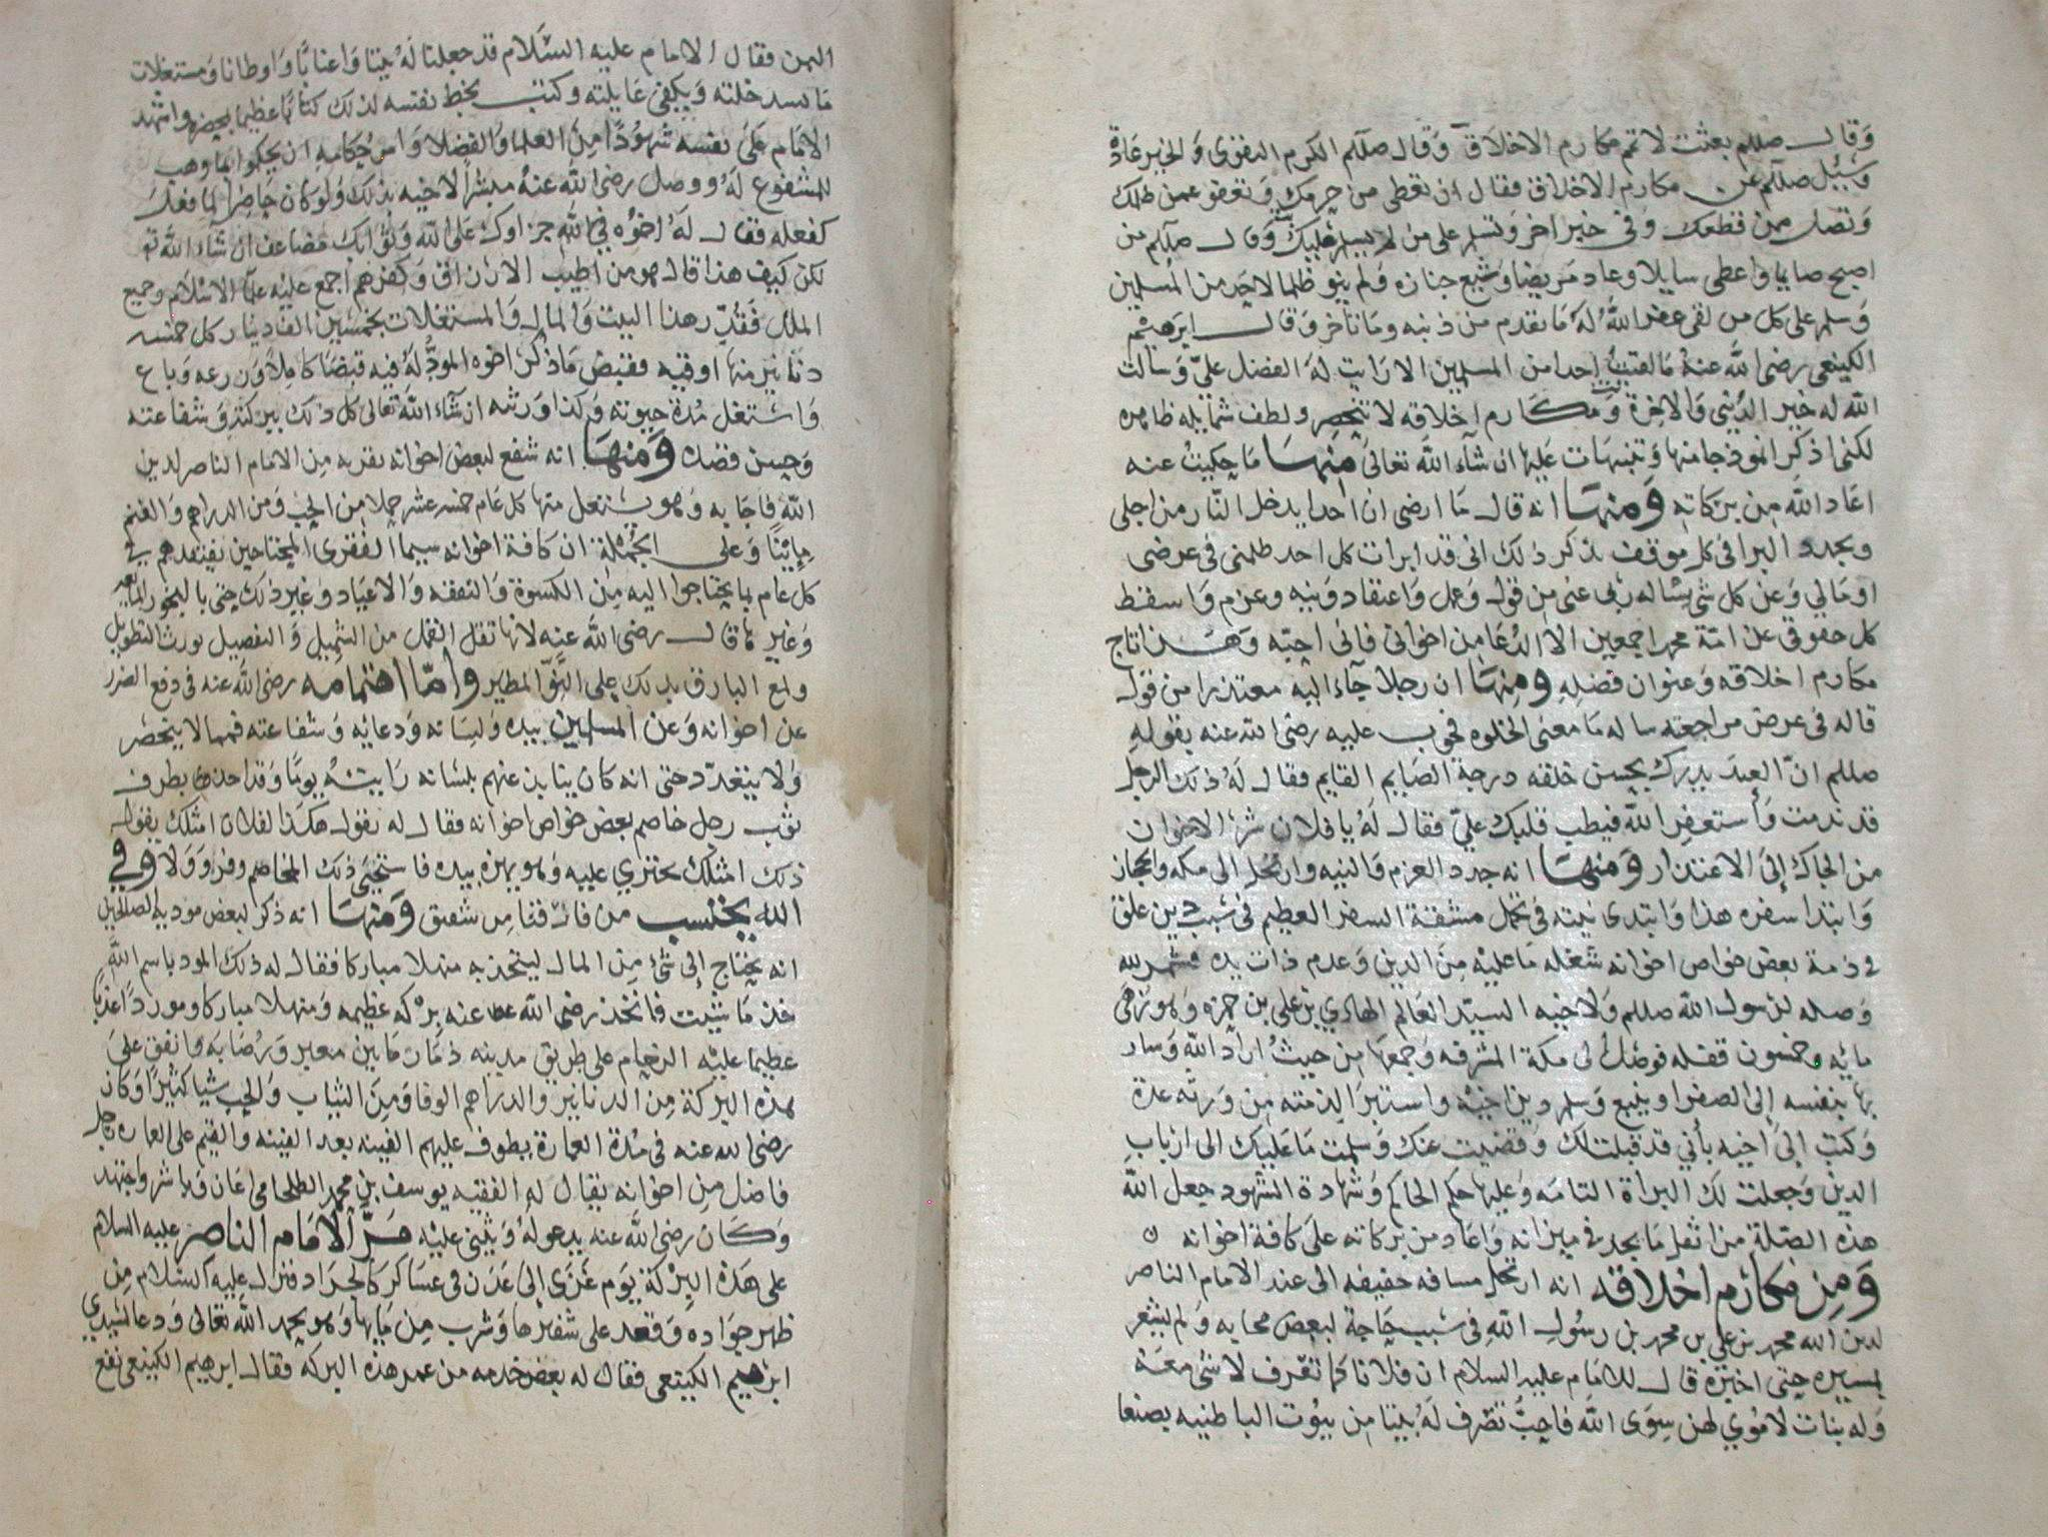 وَقال صللم بعثت لاتمم مكارم الاخلاق وَقال صللم الكرم التقوى وَالخير عَادة
وَسُيل صللم عن مكارم الاخلاق فقال ان تعطى من حرمك وَتعفو عمن ظلمك
وَتصل من قطعك وَفى خبر اخر وَتسلم على من لا يسلم عليك وَقال صللم من
اصبح صايما واعطى سايلا وعاد مريضا وَشيع جنازه وَلم ينو ظلما لاحد من المسلمين
وَسلم على كل من لقى غفر اللهُ لهُ ما تقدم من ذنبه وما تاخر وَقال ابرَهيم
الكينعى رضى الله عنهُ مَا لقيت احدا من المسلمين الا رَايت لهُ الفضل عليّ وَسالت
الله له خير الدُنيى وَالاخرة وَمكارم اخلاقه لا تنحصر ولطف شمايله ظاهره
لكنى اذكر انموذجا منها وَتنبيهات عَليها ان شآء الله تعالى مِنهَا مَا حكيتُ عنه
اعَاد الله مِن برَكاته وَمنهَا انه قال مَا ارضى ان احدا يدخل النّار من اجلى
ويجدد البرا فى كل موقف بذكر ذلك انى قد ابرات كل احد ظلمنى فى عرضى
اومَالي وَعن كل شى يسَاله ربى عنى مِن قول وَعمل وَاعتقاد وَنيه وعزم وَاسقط
كل حقوقي عن امّة محمد اجمعين الا الدُعَا من اخوانى فانى احبّه وَهذا تاج
مكارم اخلاقه وَعنوان فضلِهِ ومِنهَا ان رجلا جآء اليه معتذرا من قول
قاله فى عرض مراجعته ساله مَا معنى الخلوه فجوب عليه رضى الله عنه بقولِهِ
صللم انّ العبدَ يدرك بحسن خلقه درجة الصَايم القايم فقال لهُ ذلك الرجل
قد ندمت وَأستغفِر الله فيطب قلبك عليّ فقال لهُ يا فلان شرّ الاخوان
من الجاك إلى الاعتذار وَمنهَا انه جدد العزم وَالنيه وارتحل الى مكه والحجاز
وَابتدا سفره هذا وَابتدى نيته فى تحمل مشقة السفر العظيم فى سبب دين علق
فى ذمة بعض خواص اخوانه شغله مَا عليهِ مِنَ الدين وَعدم ذات يده فشمر لله
وَصله لرَسول الله صللم وَلاخيه السيّد العَالم الهادي بن على بن حمزه وَهو زهى
مايه وخمسون قفله فوصَل إلى مكة المشرفه وَجمعهَا مِن حيثُ ارَاد الله وَسار
بها بنفسه إلى الصفرا وينبع وَسلم دين اخيه واستبرا لذمته مِن وَرثه عدة
وَكتب إلى اخيه بأني قد قبلت لك وقضيت عنك وَسلمت مَا عليك الى ارباب
الدين وَجعلت لك البراة التامه وَعليها حكم الحاكم وَشهادة الشهود جعل الله
هذه الصّلة من اثقل مَا يجد فى ميزانه وَاعَاد من برَكاته على كافة اخوانه ن
وَمِن مكارم اخلاقه انه ارتحل مسافه خفيفه الى عند الامام الناصر
لدين الله محمد بن على بن محمد بن رسُول اللهِ فى سبب حَاجة لبعض محابه وَلم يشعر
بمسيره حتى اخبره قال للامَام عليه السلام ان فلانا كما تعرف لا شى معهُ
وَله بنات لا مُوي لهن سِوَى الله فاحبُّ تصرف لهُ بيتا مِن بيُوت الباطنيه بصنعا
اليمن فقال الامام عليه السَّلام قد جعلنا لهُ بيتا وَاعنابًا وَاوطانا وَمستغلات
مَا يسد خلته وَيكفى عَايلته وكتب بخط نفسه لذلك كتابًا عظيما بحضره وَاشهد
الامَام عَلى نفسه شهُودًا مِن العلما وَالفضلا وَامر حُكامه ان يحكموا بما وهب
للمشفوع لهُ ووصل رضى الله عنهُ مبشراً لاخيه بذلك وَلو كان حَاضِراً لما فعل
كفعله فقال لهُ اخوُه في الله جزاوك عَلى الله وَثوابك مضاعف ان شآء الله تع
لكن كيف هذا قال هو من اطيب الارزاق وَكفرهم اجمع عليه علمآ الاسلام وجميع
الملل فقدّر هذا البيت وَالمال وَالمستغلات بخمسين الف دينار كل خمسه
دنانير منها اوقيه فقبض مَا ذكر اخوه الموَدُّ لهُ فيه قبضًا كاملاً وَزرعه وَباع
وَاستغل مُدة حيوته وَكذا وَرثته ان شآء الله تعالى كل ذلك ببركته وَشفاعته
وَحسن فضله وَمنهَا انه شفع لبعض اخوانه بقريه مِن الامام الناصر لدين
الله فاجَابه وَهو يستغل منها كل عَام خمسه عشر حملا مِن الحب وَمن الدراهم وَالغنم
مِايتًا وَعلى الجُملة ان كافة اخوانه سيما الفقرى المحتاحين يفتقدهم فى
كل عام بما يحتاجوا اليه مِن الكسوة وَالنفقه وَالاعيَاد وَغير ذلك حتى بالبخور
وَغيره قال رضى الله عنه لانها تقل القمل من التجميل وَالتفصيل يورث التطويل
ولمع البارق يدلك على النوّ المطير وامّا اهتمامه رضى الله عنه فى دفع الضرر
عن اخوانه وَعن المسلمين بيده وَلسَانه وَدعايه وَشفاعته فمما لا ينحصر
وَلا يتعدّد حتى انه كان ينابذ عنهم بلسَانه رَايتهُ يومًا وَقد اخذ بطرف
ثوب رجل خاصم بعض خواص اخوانه فقال له تقول هكذا لفلان امثلك يقول
ذلك امثلك يجتري عليه وَهو يهزه بيده فاستحيى ذلك المخاصم وفر وَوَلا وفي
الله يحتسب من فاز فقام شفيق وَمنهَا انه ذكر لبعض موديه الصالحين
انه يحتاج إلى شئ مِن المال ليتخذ به منهلا مباركا فقال له ذلك المود باسم الله
خذ مَا شيت فاتخذ رضى الله عنه برْكه عظيمه وَمنهلا مباركا وموردًا عذبًا
عظيما عليه الزحام على طريق مدينه ذمَار مَابين معبر وَرُصَابه وَانفق على
هذه البركة مِن الدنانير والدراهم الوفا وَمِنَ الثياب وَالحب شيا كثيرًا وَكان
رضى الله عنه فى مُدة العمارة يطوف عليهم الفينه بعد الفينه وَالقيم على العماره رجل
فاضل مِن اخوانه يقال له الفقيه يوسف بن محمد الطلحامى اعَان وَباشر وَاجتهد
وَكان رضى الله عنه يدعو لهُ وَيثنى عليْه مَرّ الامَام الناصر عليه السلام
على هذه البرْكة يوم غزى إلى عَدَن فى عسَاكر كالجراد فنزل عليه السلام مِن
ظهر جوَاده وَقعد على شفيرها وَشرب مِن مَايها وَهو يحمد الله تعالى وَدعا لسَيدي
ابرَهيم الكينعى فقال له بعض خدمه من عمر هذه البركه فقال ابرهيم الكينعى نفع